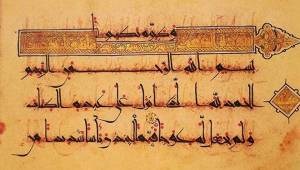 بسم الله الرحمن الرحيم
الحمد لله الذي انزل على عبده الكتب
ولم يجعل له عوجا قيما لينذر باسا شديدا من